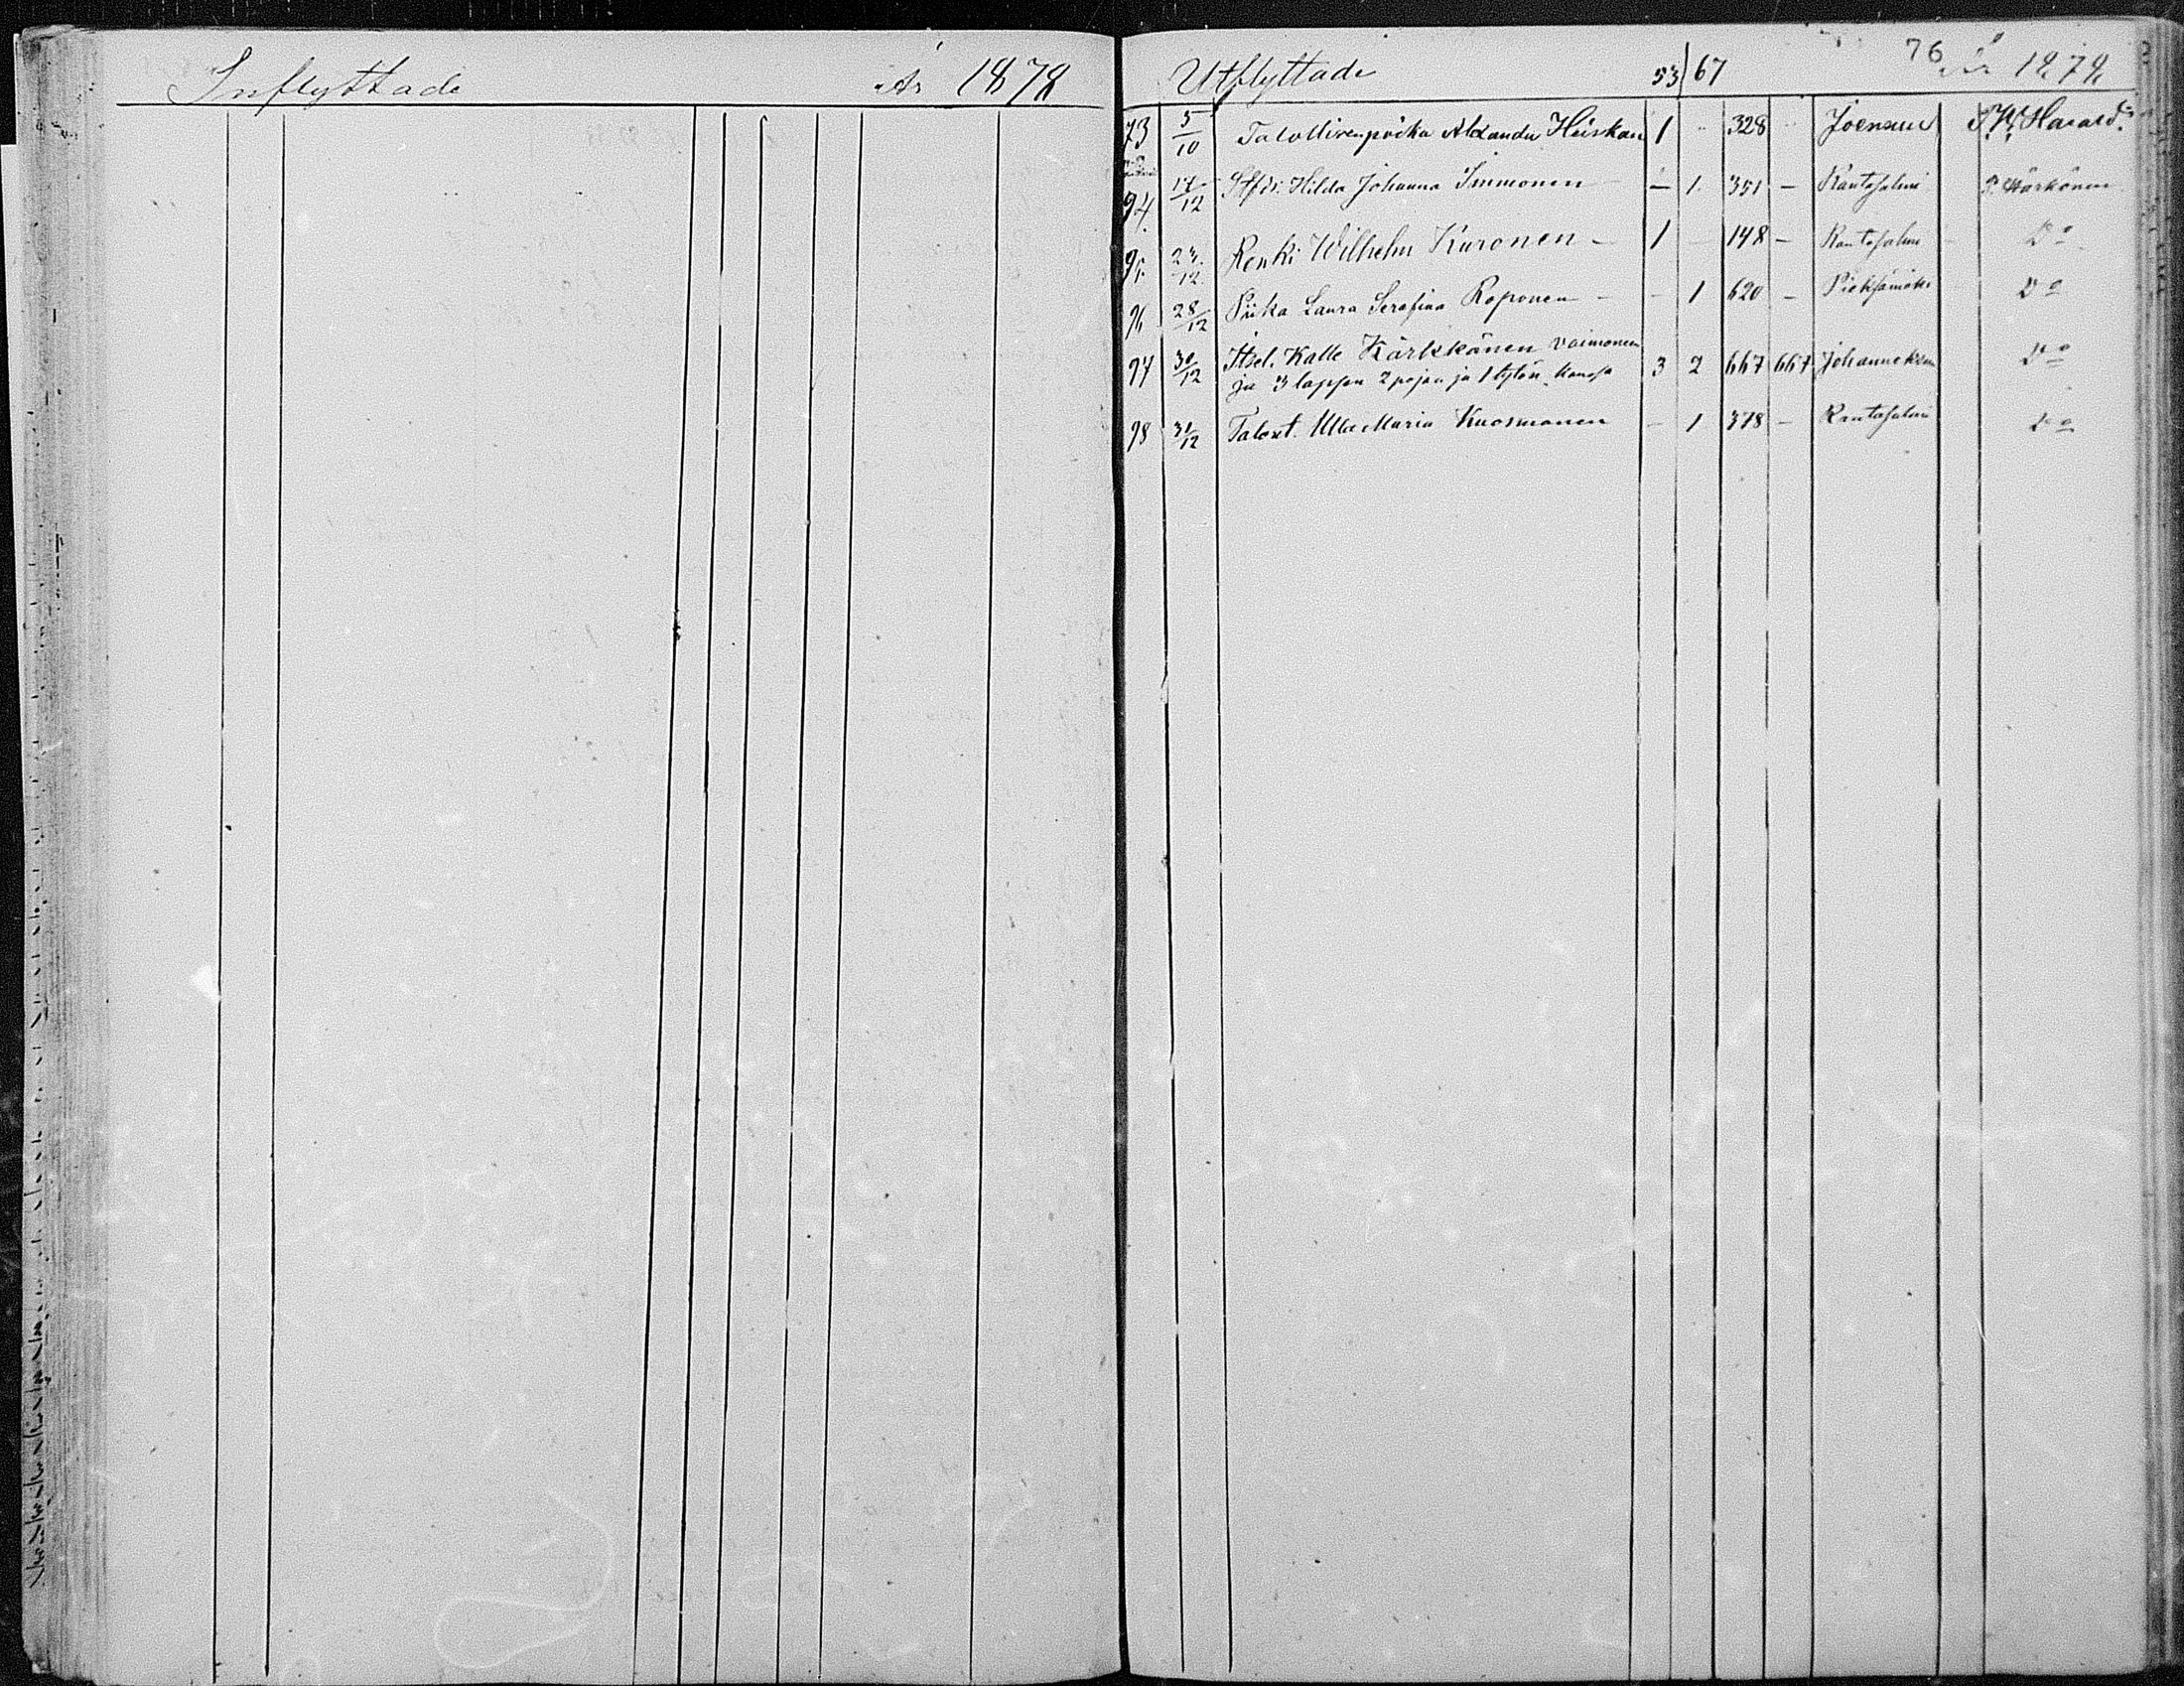 Inflyttade År 1878
Utflyttade 53/67 76 År 1878
93 5/10 Talollisenpoika Alexander Heiskan 1 328 Joensuu
94. 17/12 Hilda Johanna Immonen — 1. 351 — Rantasalmi P. Härkönen
95. 23./12. Renki Wilhelm Kuronen — 1 — 148 — Rantasalmi Do
96 28/12 Piika Laura Serafina Roponen — — 1 620 — Pieksämäki Do
97 30/12 Itsel. Kalle Kärkkänen vaimoneen
ja 3 lapsen 2 pojan ja 1 tytön kanssa 3 2 667 667 Johanneksen Do
98 31/12 Talost. Ulla Maria Kuosmanen — 1 378 — Rantasalmi Do